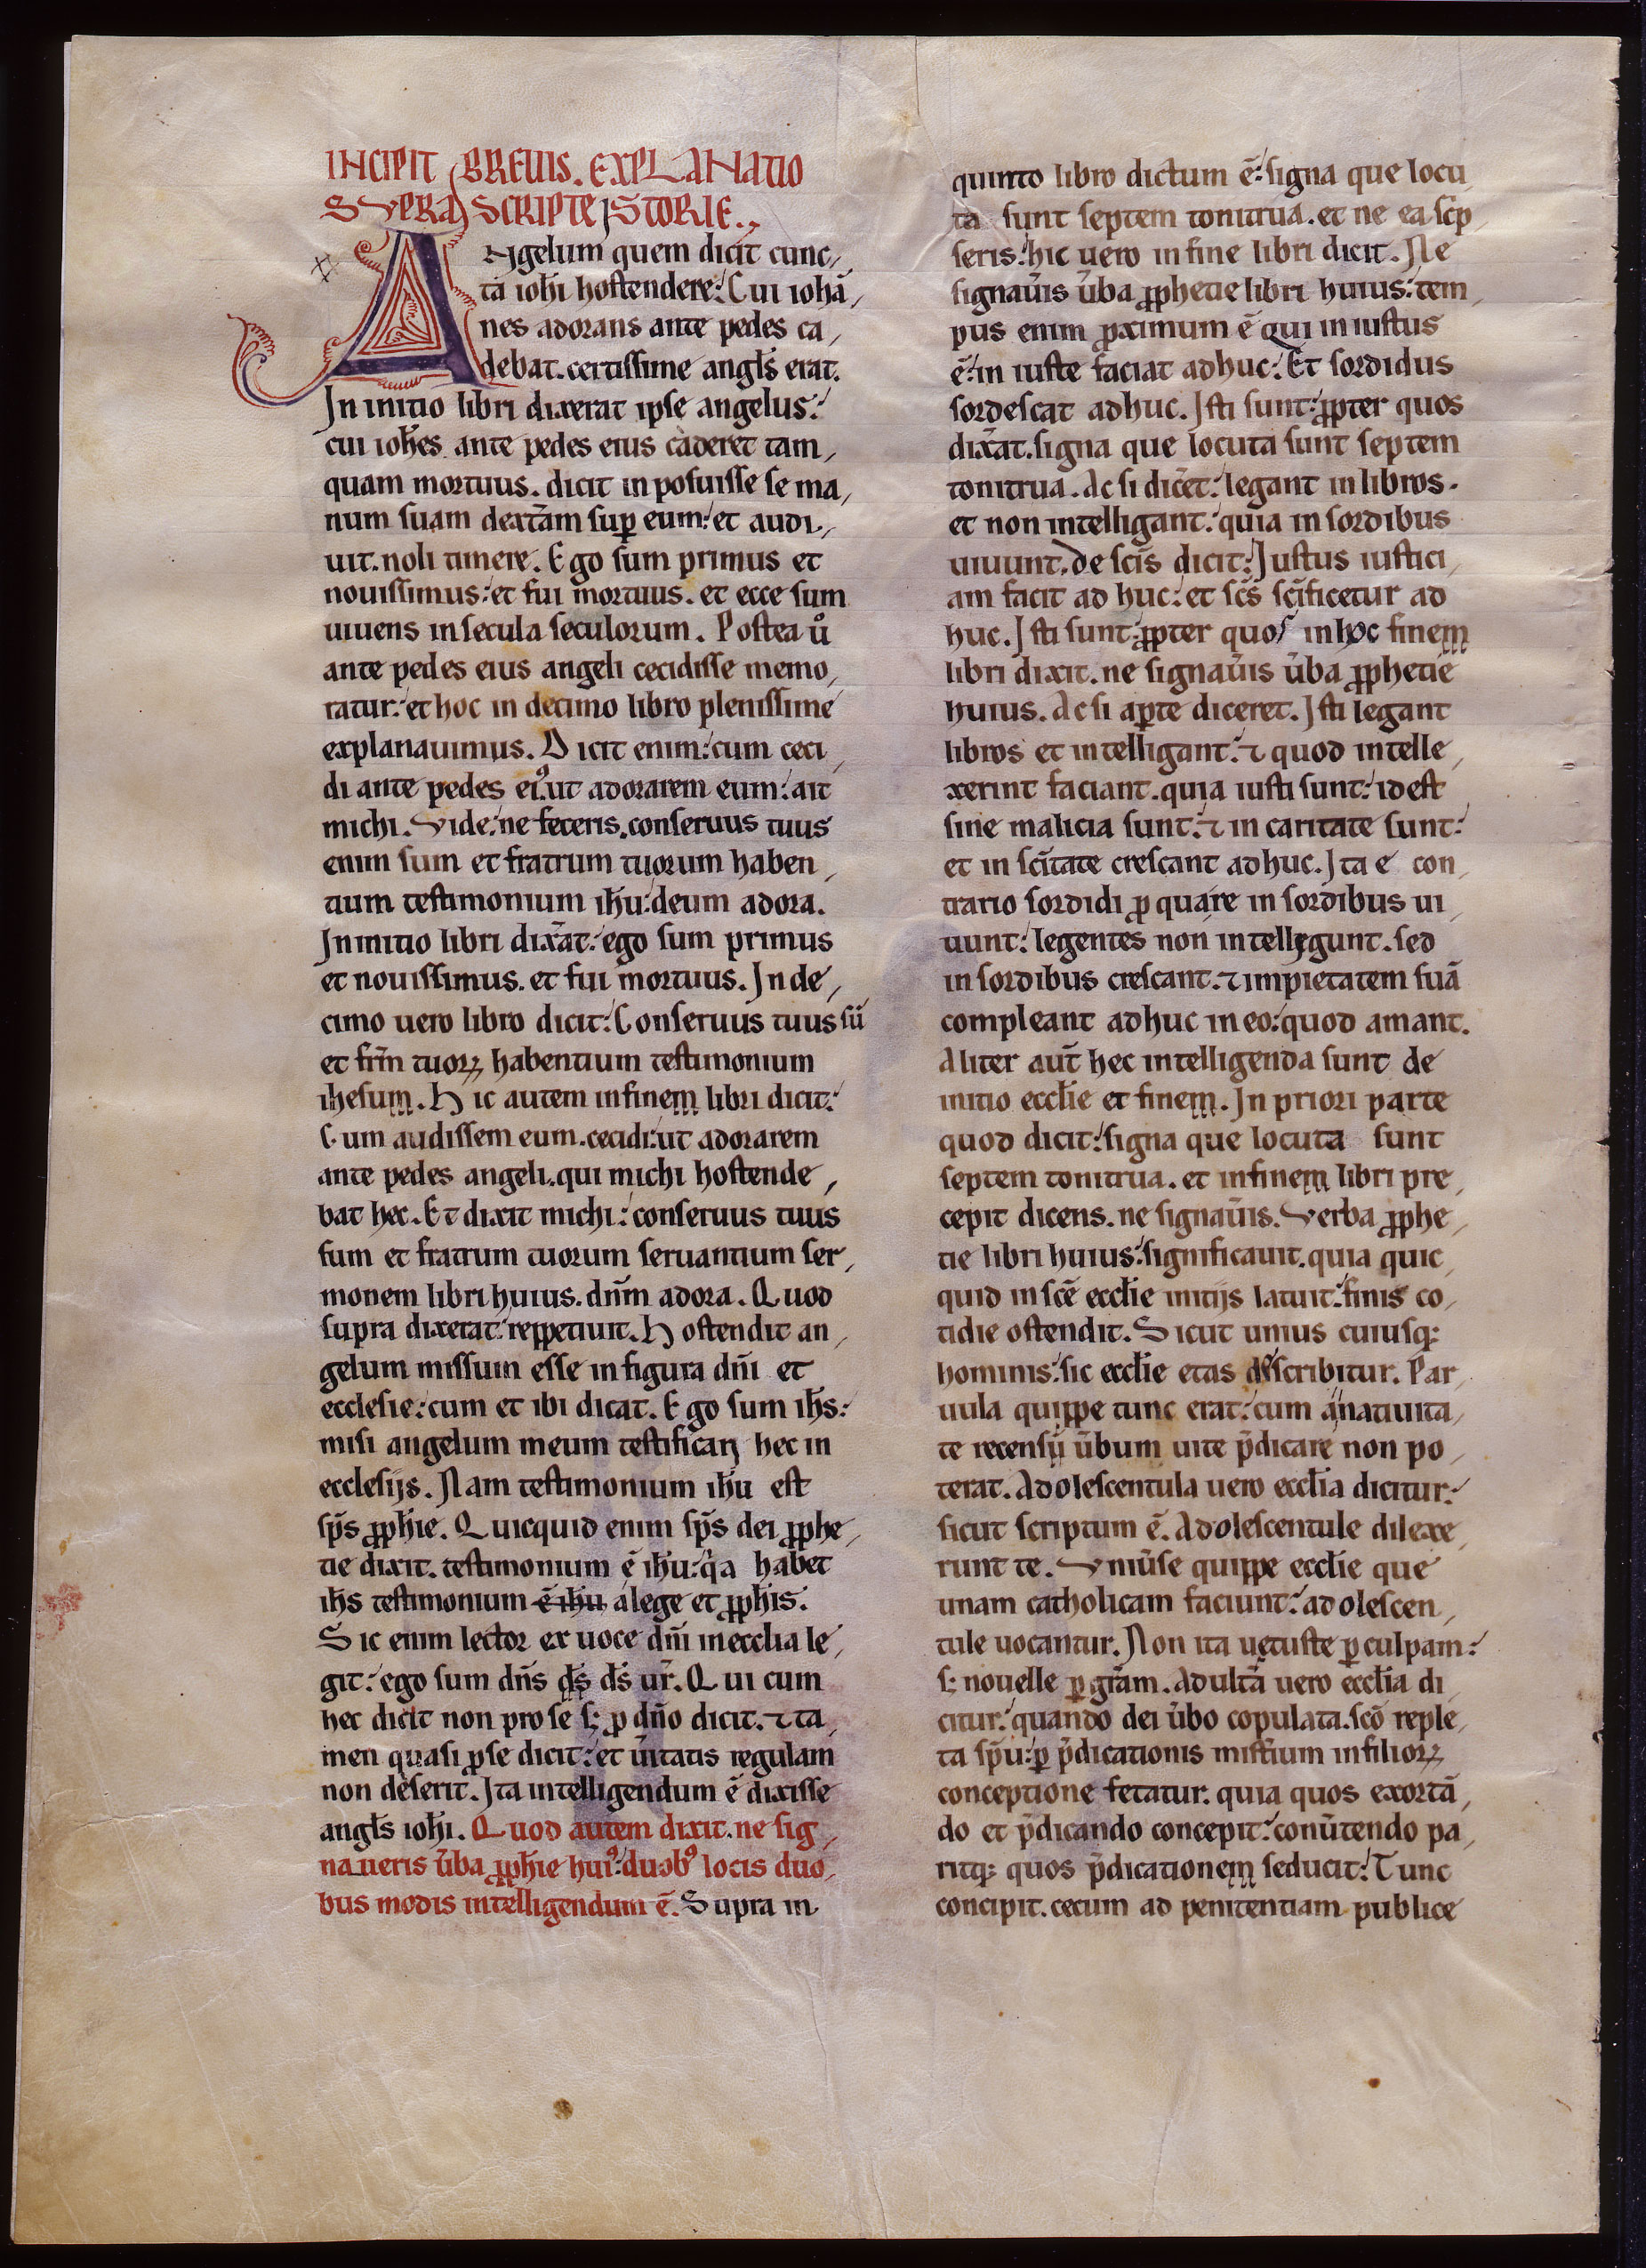 INCIPIT BREUIS. EXPLANATIO
SUPRA SCRIPTE ISTORIE.
Angelum quem dicit cunc,
ta ioh̄i hostendere: Cui iohā,
nes adorans ante pedes ca,
debat. certissime angl̄s erat.
In initio libri dixerat ipse angelus:
cui ioh̄es ante pedes eius caderet tam,
quam mortuus. dicit in posuisse se ma,
num suam dext̄am sup̱ eum: et audi,
uit. noli timere. Ego sum primus et
nouissimus: et fui mortuus. et ecce sum
uiuens in secula seculorum. Postea uͦ
ante pedes eius angeli cecidisse memo,
ratur: et hoc in decimo libro plenissime
explanauimus. Dicit enim: cum ceci,
di ante pedes eiꝰ. ut adorarem eum: ait
michi. Vide: ne feceris. conseruus tuus
enim sum et fratrum tuorum haben,
tium testimonium ih̄u: deum adora.
In initio libri dix̄at: ego sum primus
et nouissimus. et fui mortuus. In de,
cimo uero libro dicit: Conseruus tuus sū
et fr̄m tuoꝝ habentium testimonium
ihesum. Hic autem in finem libri dicit:
Cum audissem eum. cecidi: ut adorarem
ante pedes angeli. qui michi hostende,
bat hec. Et dixit michi: conseruus tuus
sum et fratrum tuorum seruantium ser,
monem libri huius. dn̄m adora. Quod
supra dixerat: reppetiuit. Hostendit an,
gelum missum esse in figura dn̄i et
ecclesie: cum et ibi dicat. Ego sum ih̄s:
misi angelum meum testificari hec in
ecclesijs. Nam testimonium ih̄u est
sp̄s ꝓph̄ie. Quicquid enim sp̄s dei ꝓphe,
tie dixit. testimonium ē ih̄u: qͥa habet
ih̄s testimonium ē ih̄u a lege et ꝓph̄is.
Sic enim lector ex uoce dn̄i in eccl̄ia le,
git: ego sum dn̄s d̄s d̄s ur̄. Qui cum
hec dicit non pro se s; ꝓ dn̄o dicit. ⁊ ta,
men quasi ꝓ se dicit: et ūitatis regulam
non deserit. Ita intelligendum ē dixisse
angl̄s ioh̄i. Quod autem dixit. ne sig,
naueris ūba ꝓph̄ie huiꝰ: duobꝰ locis duo,
bus modis intelligendum ē. Supra in
quinto libro dictum ē: signa que locu,
ta sunt septem tonitrua. et ne ea sc̄p,
seris: hic uero in fine libri dicit. Ne
signaūis ūba ꝓphetie libri huius: tem,
pus enim ꝓximum ē Qui iniustus
ē: in iuste faciat adhuc: Et sordidus
sordescat adhuc. Isti sunt: ꝓpter quos
dix̄at. signa que locuta sunt septem
tonitrua. Ac si dic̄et: legant in libros.
et non intelligant: quia in sordibus
uiuunt. de sc̄is dicit: Iustus iustici,
am facit ad huc: et sc̄s sc̄ificetur ad
huc. Isti sunt: ꝓpter quos in hoc finem
libri dixit. ne signaūis ūba ꝓphetie
huius. Ac si aꝑte diceret. Isti legant
libros et intelligant: ⁊ quod intelle,
xerint faciant. quia iusti sunt: id est
sine malicia sunt: ⁊ in caritate sunt:
et in sc̄itate crescant adhuc. Ita e con,
trario sordidi ꝓ quare in sordibus ui,
uunt: legentes non intelligunt. sed
in sordibus crescant. ⁊ impietatem suā
compleant adhuc in eo: quod amant.
Aliter aut̄ hec intelligenda sunt de
initio eccl̄ie et finem. In priori parte
quod dicit: signa que locuta sunt
septem tonitrua. et in finem libri pre,
cepit dicens. ne signaūis. Verba ꝓphe,
tie libri huius: significauit. quia quic,
quid in sc̄e eccl̄ie initijs latuit: finis co,
tidie ostendit. Sicut unius cuiusq;
hominis: sic eccl̄ie etas describitur. Par,
uula quippe tunc erat: cum a natiuita,
te recens ūbum uite p̄dicare non po,
terat. Adolescentula uero eccl̄ia dicitur:
sicut scriptum ē. Adolescentule dilexe,
runt te. Vniūse quippe eccl̄ie que
unam catholicam faciunt: adolescen,
tule uocantur. Non ita uetuste ꝑ culpam:
s; nouelle ꝑ gr̄am. Adulta uero eccl̄ia di,
citur: quando dei ūbo copulata. sc̄o reple,
ta sp̄u: ꝑ p̄dicationis mist̄ium in filioꝝ
conceptione fetatur. quia quos exortā,
do et p̄dicando concepit: conūtendo pa,
ritq; quos p̄dicationem seducit: Tunc
concipit. cecum ad penitentiam publice